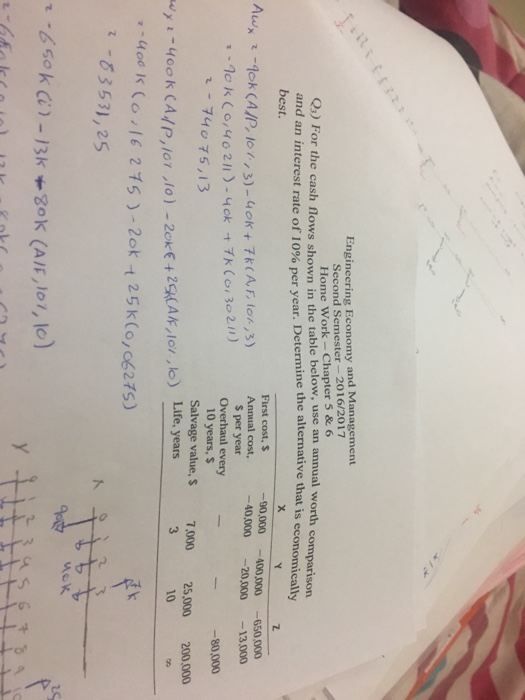 Engineering Economy and Management
Second Semester – 2016/2017
Home Work – Chapter 5 & 6
Q3) For the cash flows shown in the table below, use an annual worth comparison
and an interest rate of 10% per year. Determine the alternative that is economically
best.
X Y Z
First cost, $ −90,000 −400,000 −650,000
Annual cost, $ per year −40,000 −20,000 −13,000
Overhaul every 10 years, $ — — −80,000
Salvage value, $ 7,000 25,000 200,000
Life, years 3 10 ∞
AWx = -90K(A/P, 10%, 3) - 40K + 7K(A/F, 10%, 3)
= -90K(0,40211) - 40K + 7K(0,30211)
= -74075,13
wy = -400K(A/P, 10%, 10) - 20K + 25K(A/F, 10%, 10)
= -400K(0,16275) - 20K + 25K(0,06275)
= -83531,25
= -650K(i) - 13K + 80K (A/F, 10%, 10)
X 0 1 2 3
7K
40K
90K
Y 0 1 2 3 4 5 6 7 8 9
25